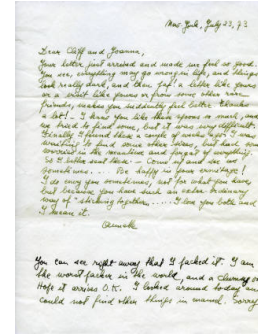 New York, July 23, 73
Dear Cliff and Joanna,
Your letter just arrived and made me feel so good.
You see, everything may go wrong in life, and things
look really dark, and then gap a letter like yours
or a visit like yours or from some other rare
friends, makes you suddenly feel better. Thanks
a lot! - I knew you like these spoons so much, and
we tried to find some, but it was very difficult.
Finally I found them a couple of weeks ago. I was
waiting to find some other items, but had some
worries in the meantime and forgot everything.
So I better send these - Come up and see us
sometimes.... Be happy in your ermitage!
I do envy you sometimes, not for what you have
but because you have such an extraordinary
way of "sticking together".... I love you both and
I mean it.
You can see right away that I packed it. I am
the worst packer in the world, and a clumsy
Hope it arrives O.K. I looked around today and
could not find other things in enamel. Sorry